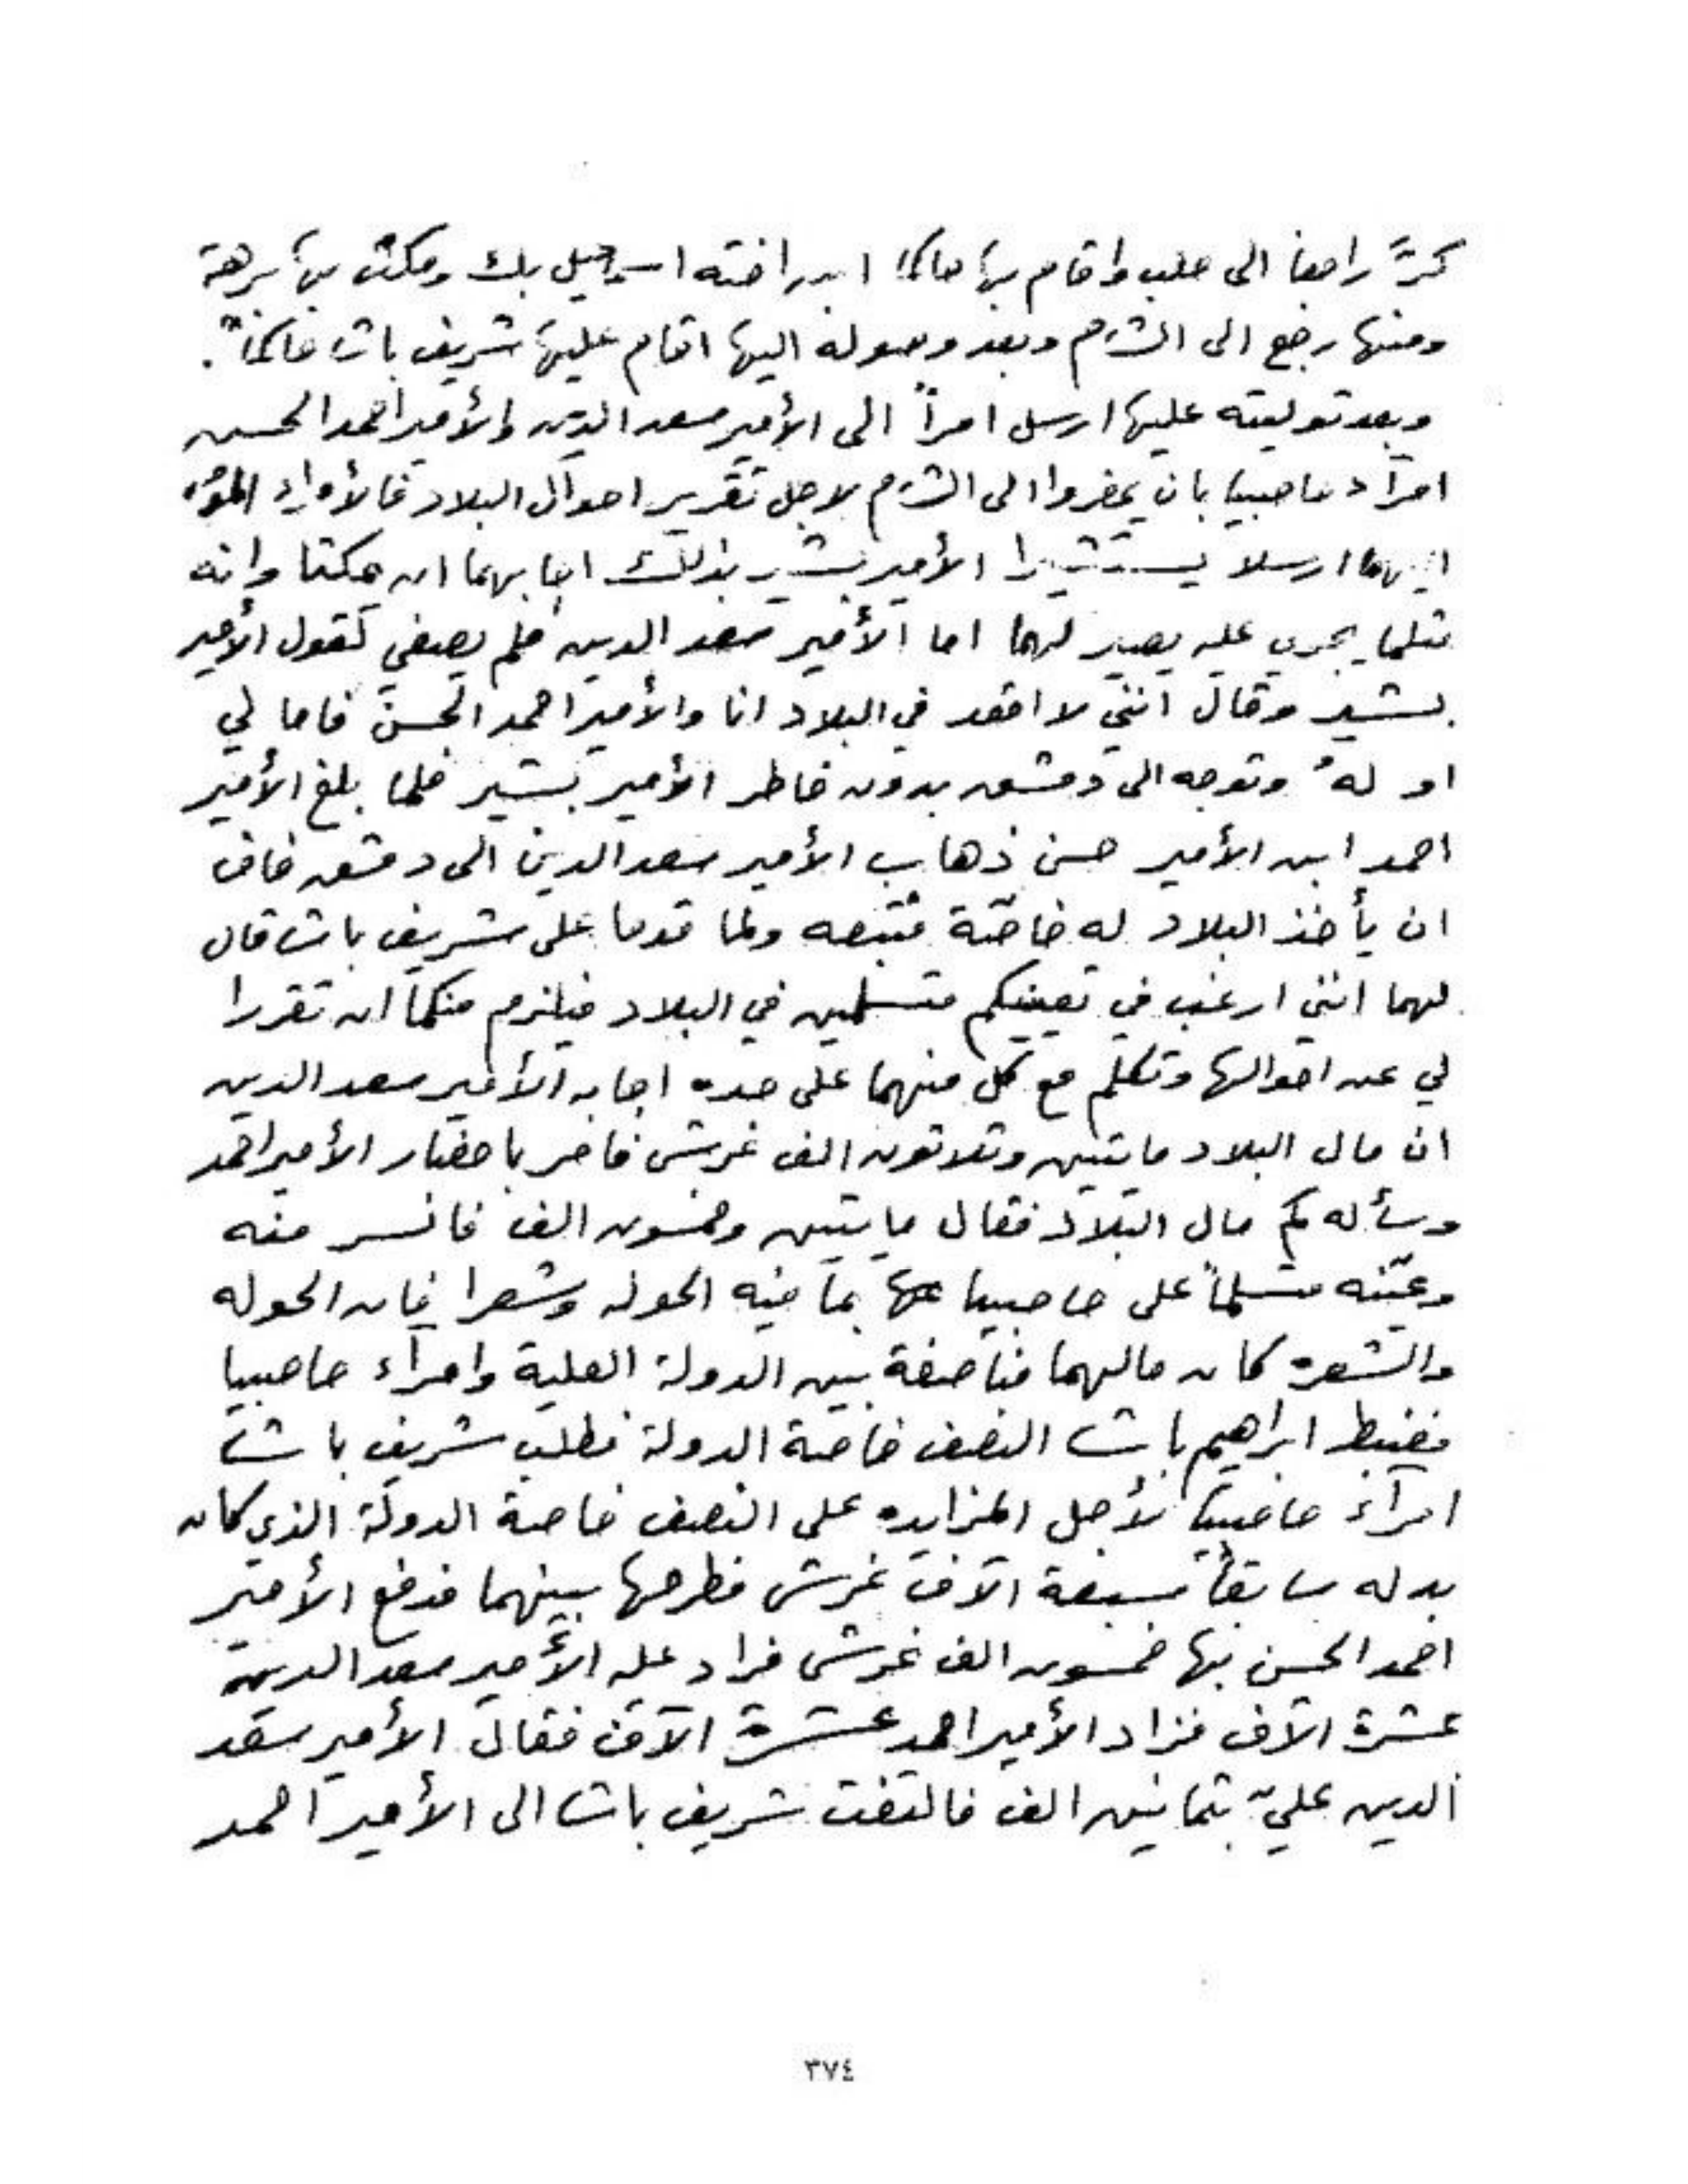 كرَّ راجعا الى حلب واقام بها حاكما ابن اخته اسمعيل بك ومكث بها برهة
ومنها رجع الى الشام وبعد وصوله اليها اقام عليها شريف باشا حاكماً.
وبعد توليته عليها ارسل امراً الى الأمير سعد الدين والأمير احمد الحسن
امرآء حاصبيا بان يحضروا الى الشام لاجل تقرير احوال البلاد فالأمراء
ارسلا يستشيرا الأمير بشير بذلك اجابهما ان يمكثا وانه
مثلما يجري عليه يصير لهما اما الأمير سعد الدين فلم يصغي لقول الأمير
بشير وقال انني لا اقعد في البلاد انا والأمير احمد الحسن فاما لي
او لهُ وتوجه الى دمشق بدون خاطر الأمير بشير فلما بلغ الأمير
احمد ابن الأمير حسن ذهاب الأمير سعد الدين الى دمشق خاف
ان يأخذ البلاد له خاصّة فتبعه ولما قدما على شريف باشا قال
لهما انني ارغب في تعيينكم متسلمين في البلاد فيلزم منكما ان تقررا
لي عن احوالها وتكلم مع كل منهما على حده اجابه الأمير سعد الدين
ان مال البلاد مايتين وثلاثون الف غرش فامر باحضار الأمير احمد
وسأله كم مال البلاد فقال مايتين وخمسون الف فانسر منه
وعيّنه متسلماً على حاصبيا بما فيه الحوله وشعرا فان الحوله
والشعره كان مالهما مناصفة بين الدولة العلية وامرآء حاصبيا
فضبط ابراهيم باشا النصف خاصة الدولة فطلب شريف باشا
امرآء حاصبيا لأجل المزايده على النصف خاصة الدولة الذي كان
بدله سابقاً سبعة الآف غرش فطرحها بينهما فدفع الأمير
احمد الحسن بها خمسون الف غرش فزاد عليه الأمير سعد الدين
عشرة الآف فزاد الأمير احمد عشرة الآف فقال الأمير سعد
الدين عليّ بثمانين الف فالتفت شريف باشا الى الأمير احمد
٣٧٤